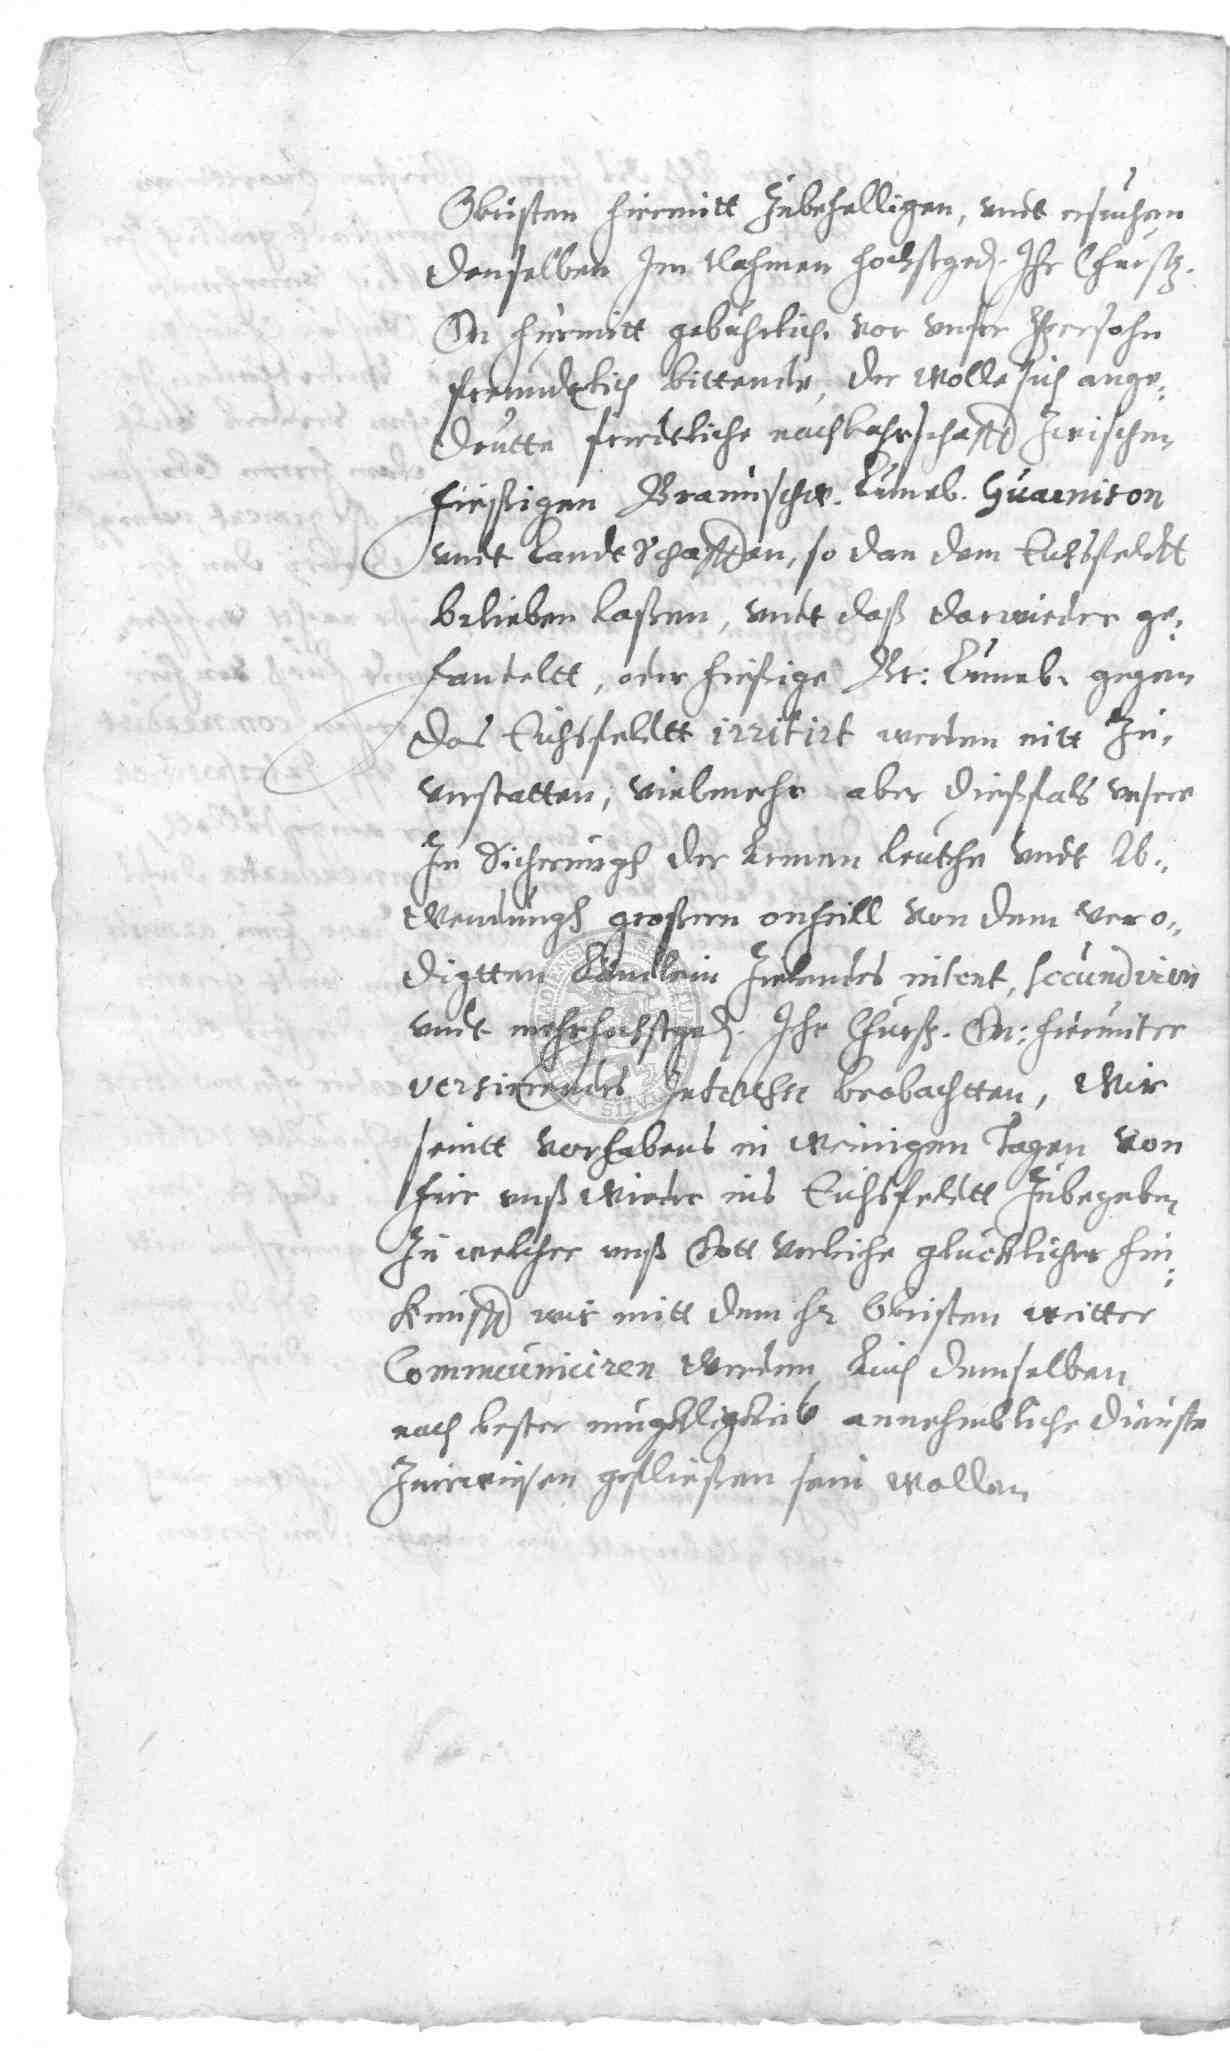 Obristen hiermitt Zubehelligen, undt ersuchen
denselben Im Nahmen hochstged. Ihr Churfl.
Gn hiermitt gebührlich. vor unser Persohn
freundtlich bittende, der wolle sich ange„
deutte friedtliche nachbahrschafft Zwischen
hiesigen Braunschw. Luneb. Guarnison
undt Landtschafften, so dan dem Eichsfeldtt
belieben laßen, undt daß darwieder ge„
handeltt, oder hiesige Br: Luneb. gegen
das Eichsfeldtt irritirt werden nitt Zu„
verstatten, vielmehr aber dießfals unsere
Zu Sicherungh der Armen leuthe undt Ab„
wendungh großern onheill von dem vero„
digtten Ländlein Zielendes intent, secundiren
undt mehrhochstged. Ihr Churfl. Gn: hierunter
versirendes Interesse beobachtten, Wir
seintt vorhabens in weinigen Tagen von
hier unß wieder ins Eichsfeldtt Zubegeben
Zu welcher unß Gott verleihe glucklicher hin„
kunfft wir mitt dem hr Obristen weitter
Communiciren werden Auch demselben
nach bester mugkligkeit annehmbliche dienste
Zuerweisen gefließen sein wollen